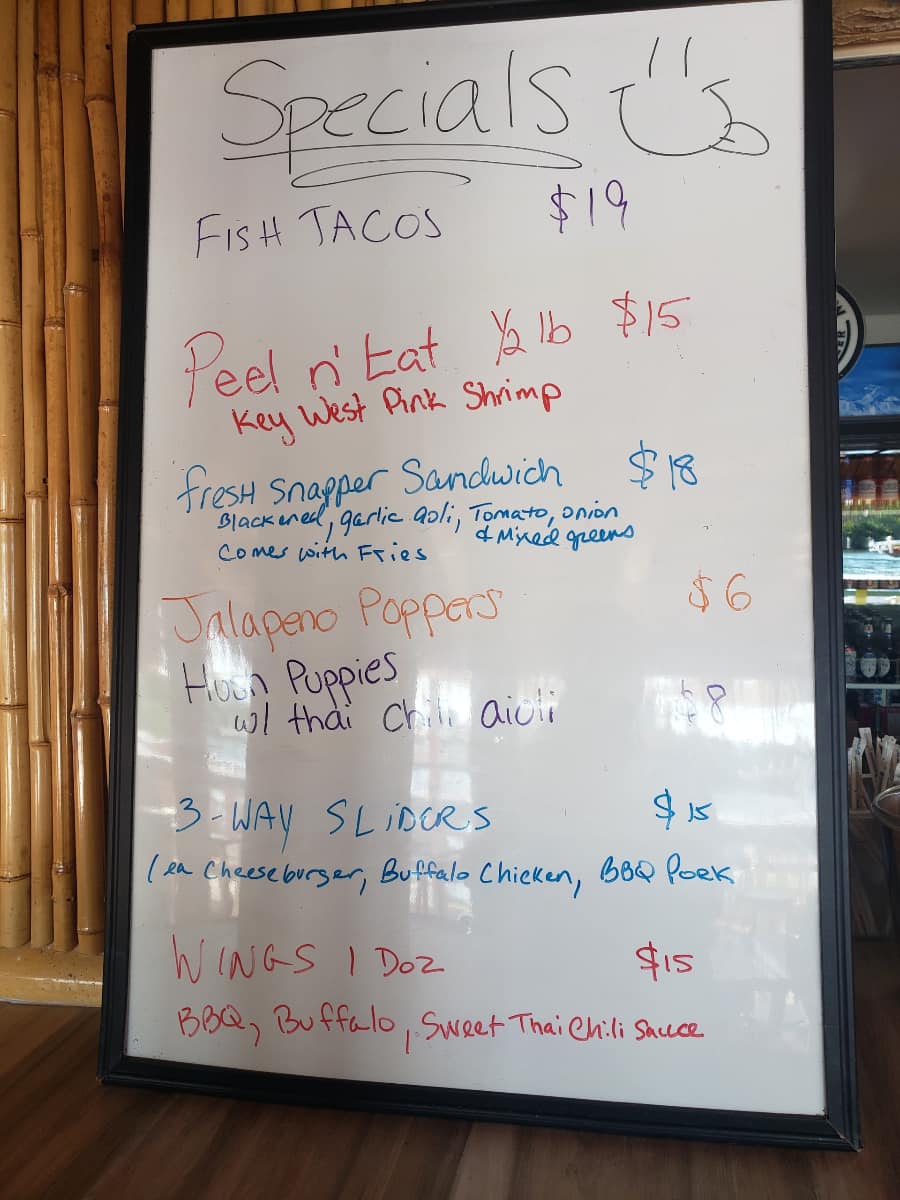 Specials
FISH TACOS $19
Peel n' Eat ½ lb $15
Key West Pink Shrimp
fresH Snapper Sandwich $18
Blackened, garlic aoli, Tomato, onion
& Mixed greens
Comes with Fries
Jalapeno Poppers $6
Hush Puppies
w/ thai Chili aioli $8
3-WAY SLiDERS $15
1 ea Cheeseburger, Buffalo Chicken, BBQ Pork
WINGS 1 Doz $15
BBQ, Buffalo, Sweet Thai Chili Sauce